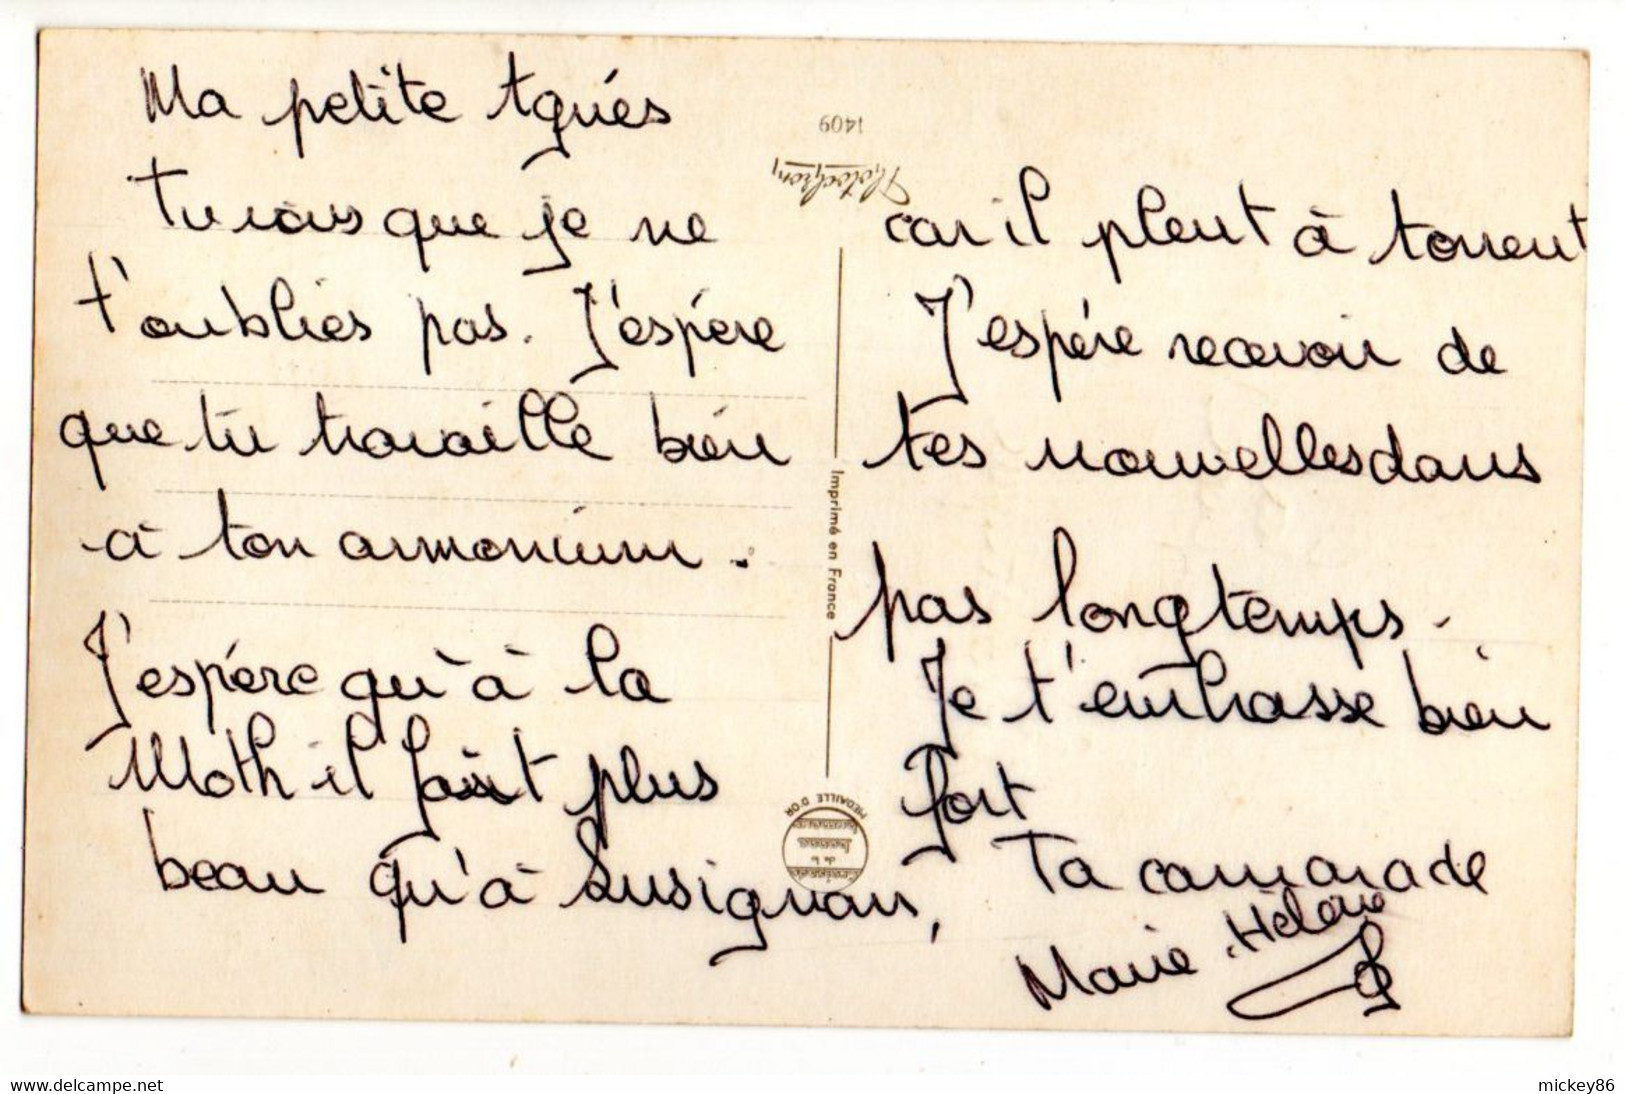 Ma petite Agnés
tu vois que je ne
t'oublies pas. J'espére
que tu travaille bien
à ton armonium.
J'espére qu'à la
Moth il fait plus
beau qu'à Lusignan,
car il pleut à torrent
J'espére recevoir de
tes nouvelles dans
pas longtemps.
Je t'embrasse bien
fort
Ta camarade
Marie-Helene
1409
Photochrom
Imprimé en France
MÉDAILLE D'OR
www.delcampe.net
mickey86